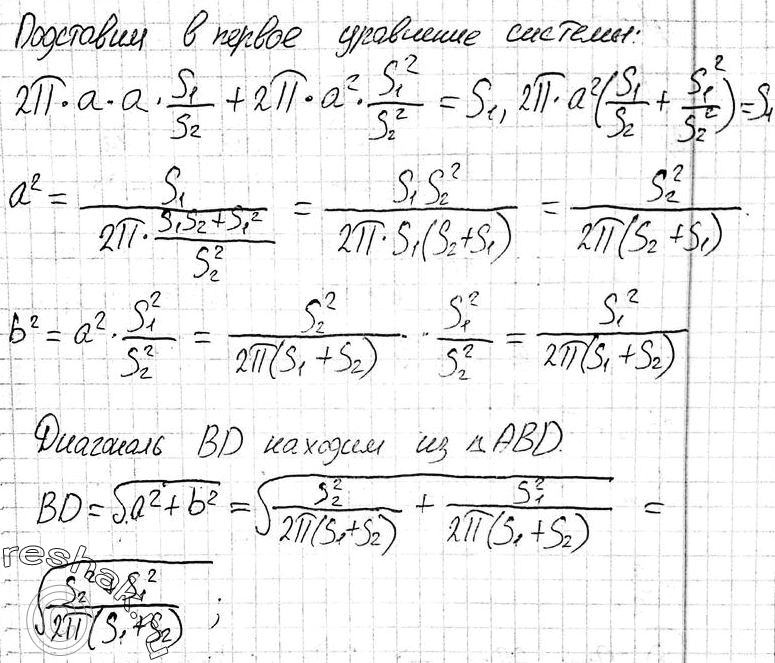 Подставим в первое уравнение системы:
2π·a·a·S₁/S₂ + 2π·a²·S₁²/S₂² = S₁, 2π·a²(S₁/S₂ + S₁²/S₂²) = S₁
a² = S₁/(2π·(S₁S₂+S₁²)/S₂²) = S₁S₂²/(2π·S₁(S₂+S₁)) = S₂²/(2π(S₂+S₁))
b² = a²·S₁²/S₂² = S₂²/(2π(S₁+S₂)) · S₁²/S₂² = S₁²/(2π(S₁+S₂))
Диагональ BD находим из ΔABD.
BD = √(a²+b²) = √(S₂²/(2π(S₁+S₂)) + S₁²/(2π(S₁+S₂))) =
√((S₂² + S₁²)/(2π(S₁+S₂)));
reshak.ru